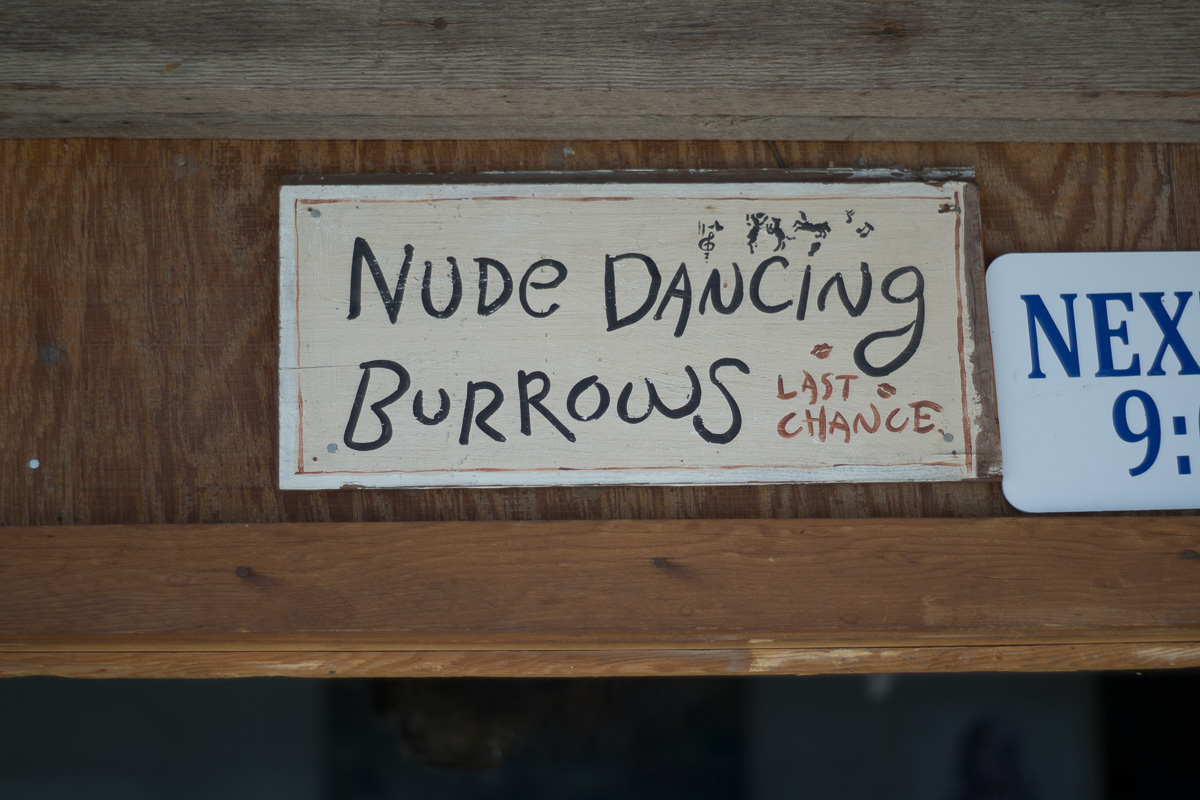 Nude Dancing
Burrows
LAST
CHANCE.